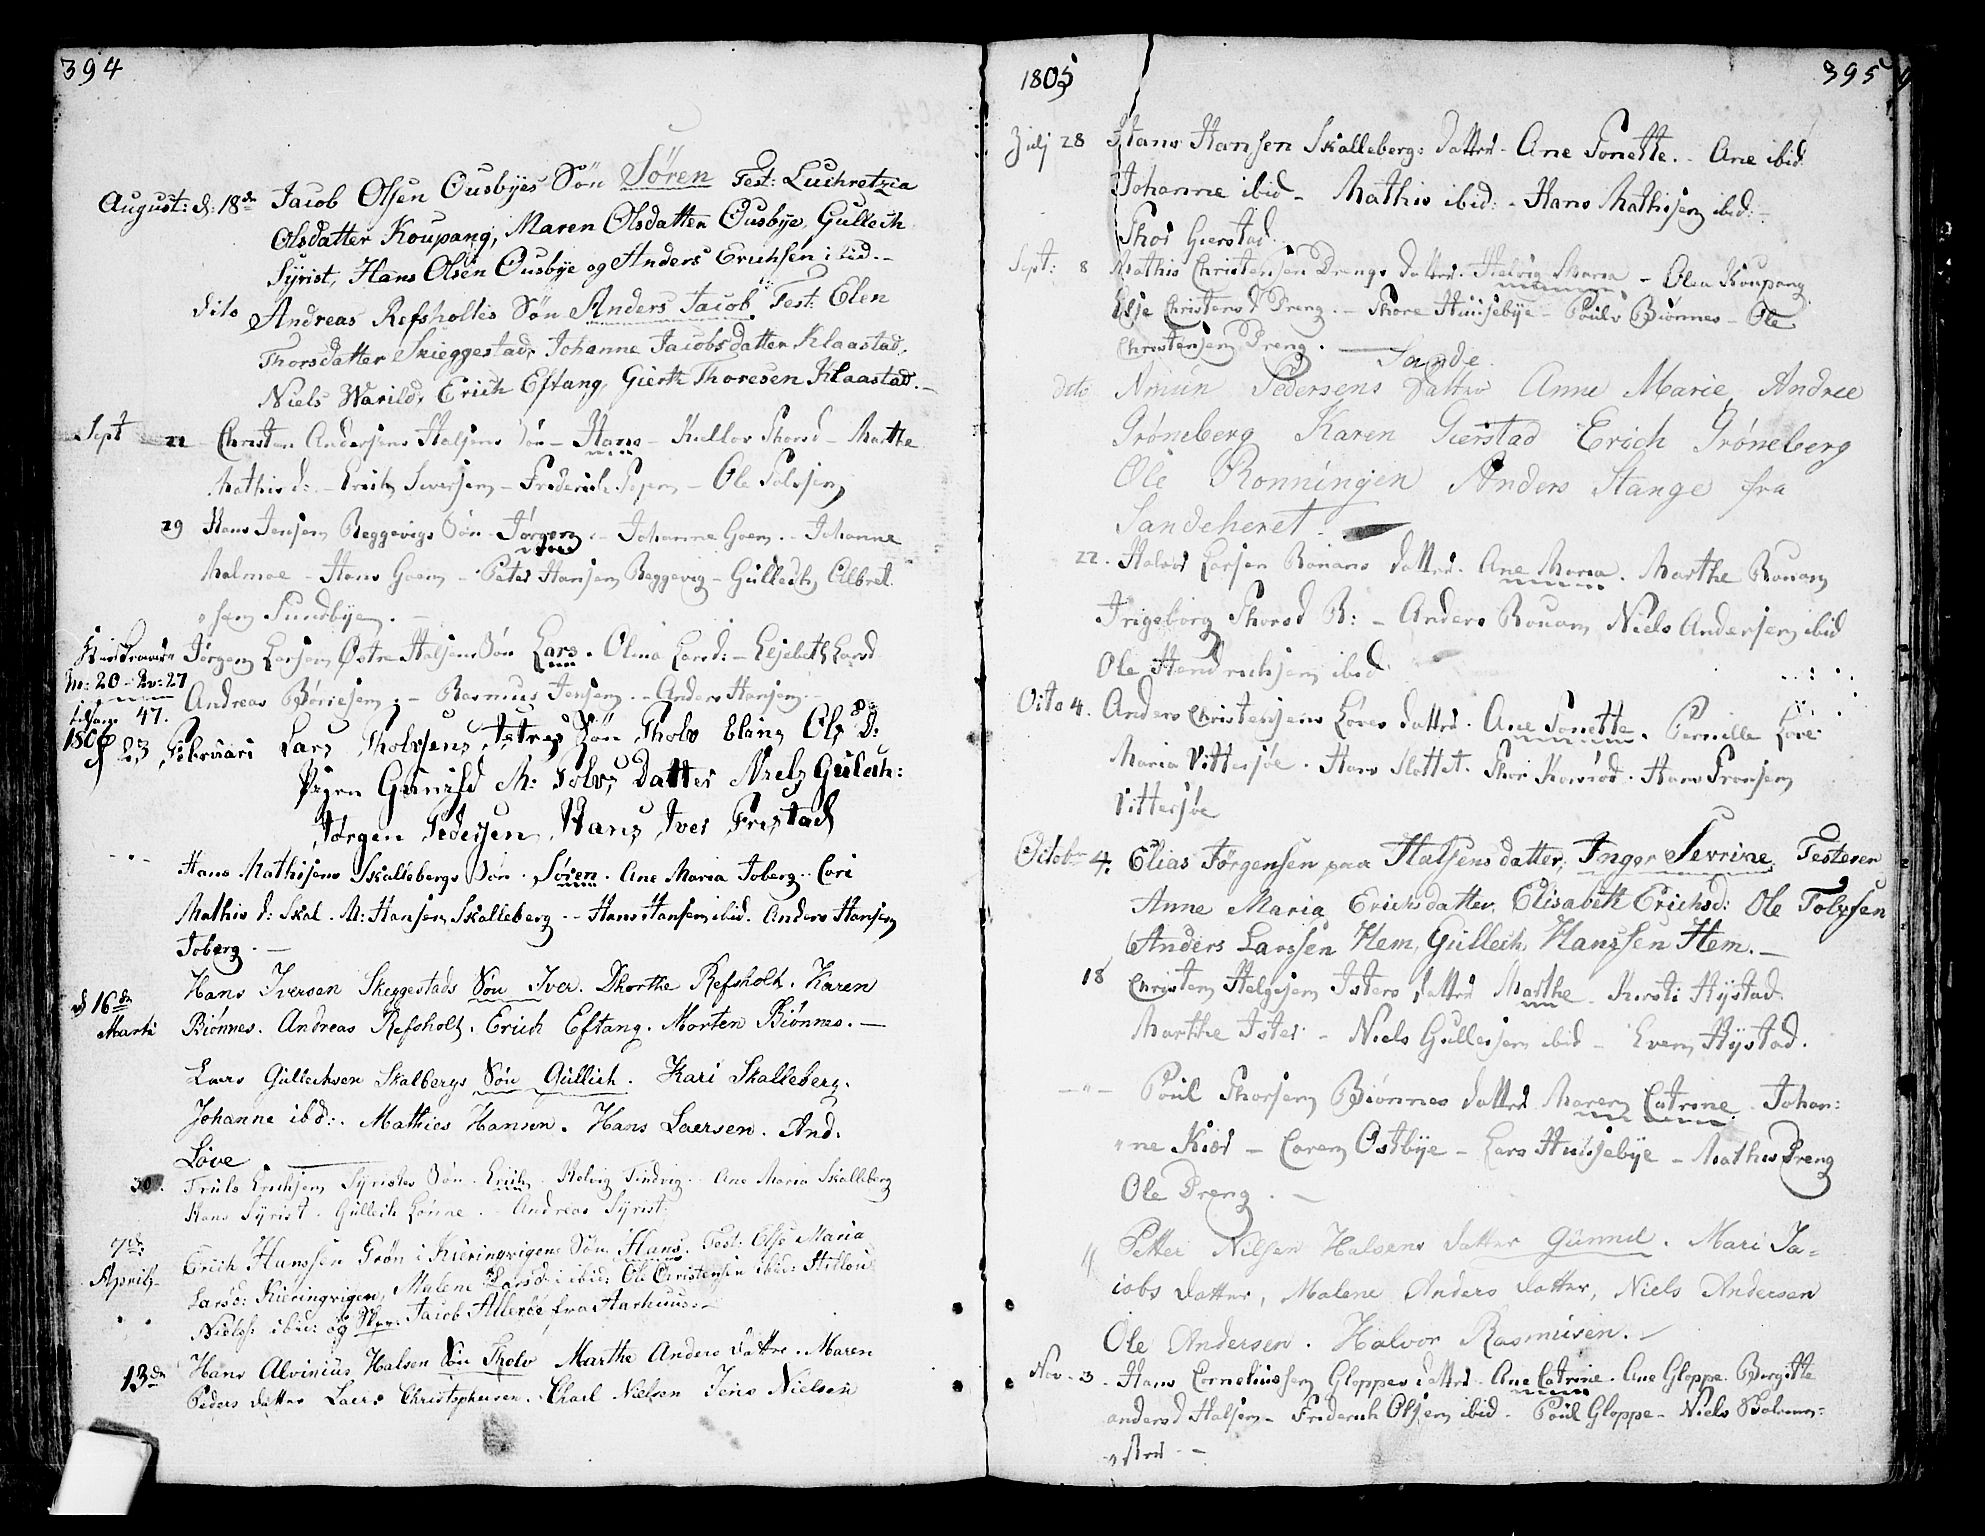 394
August: d: 18de Jacob Olsen Ousbyes Sön Sören Test: Luchretzia
Olsdatter Koupang, Maren Olsdatter Ousbye, Gullech
Syrist, Hans Olsen Ousbye og Anders Erichsen ibid.-
dito Andreas Refsholtes Sön Anders Jacob Test: Elen
Thorsdatter Skieggestad, Johanne Jacobsdatter Klaastad,
Niels Warild, Erich Eftang, Gierth Thoresen Klaastad.-
Sept 22 Christen Andersens Halsens Sön - Hans - Kullov Thorsd - Marthe
Mathis d: - Erich Iversen - Friderich - Ole Tolvsen
29 Hans Jensen Beggevigs Sön - Jørgen - Johanne Goen - Johanne
Malmoe - Hans Goen - Peter Hansen Beggevig - Gullech Albret
sen Sundbye. -
Jørgen Larsen Østre Halsens Sön Lars. Olina Larsd: - Elsebeth Larsd
M: 20 - Qv: 27
Andreas Børresen - Rasmus Jensen - Anders Hansen -
47.
1806 23 Februari Lars Tholvsens Istres Sön Tholv Elsing Ols D:
Gunild M: Tolvs Datter Niels Gulech:
Jörgen Pedersen Hans Iver Frestad
- " - Hans Mathisens Skallebergs Sön - Sören. Ane Maria Joberg. Cari
Mathis d: Skal. M: Hansen Skalleberg - Hans Hansen ibid. Anders Hansen
Joberg. -
Hans Iversen Skeggestads Sön Iver. Dhorthe Refsholt. Karen
d 16de Marti Biönnes. Andreas Refsholt. Erich Eftang. Morten Biönnes. -
Laers Gullechsen Skalbergs Sön Gullich. Kari Skalleberg.
Johanne ibd:. Mathies Hansen. Hans Laersen. And.
Løve
30. Truls Erichsen Syristes Sön - Erich - Helvig Tindvig - Ane Maria Skalleberg
Hans Syrist. Gullech Lønne. - Andreas Syrist.
7de April Erich Hanssen Grön i Kieringvigens Sön Hans. Test: Else Maria
Larsd: Kieringvigen, Malene Larsd: ibid: Ole Christensen ibid:
Nielss: ibid: og Jacob Allerøe fra Aarhuus.
13de Hans Alvinius Halsen Sön Tholv Marthe Anders Dattre. Maren
Peders datter Laers Christophersen. Charl Nielsen Jens Nielsen
1805 395
Julj 28 Hans Hansen Skalleberg: datter - Ane Tonette. - Ane ibid
Johanne ibid - Mathis ibid: - Hans Mathisen ibid: -
Thor Gierstad.
Sept: 8 Mathis Christensen Drengs datter. Helvig Maria - Olea Koupang
Else Christensd Dreng. - Thore Huusebye - Pouls Biönnes - Ole
Christensen Dreng. -
Sande.
dito Amun Pedersens Datter Anne Marie, Andree
Gröneberg Karen Gierstad Erich Gröneberg
Ole Ronningen Anders Stange fra
Sandeheret.
22. Halvor Larsen Bonans datter. Ane Maria. Marthe Bonan
Ingeborg Thorsd B: - Anders Bouan Niels Andersen ibid
Ole Hendrichsen ibid
Octo 4. Anders Christensens Løves datter. Ane Tonette. Pernille Løve
Maria Vittersøe. Hans Slottet. Thor Kavrød. Hans Fransen
Vittersøe
Octobr 4. Elias Jörgensen paa Halsens datter, Inger Sevrine, Testerer
Anne Maria Erichsdatter. Elisabeth Erichsd: Ole Tolvsen
Anders Larssen Hem, Gullech Hanssen Hem. -
18 Christen Helgesen Isters datter Marthe. Kirsti Hystad
Marthe Ister - Niels Gullichsen ibid - Even Hystad.
- " - Poul Thorsen Biönnes datter Maren Catrine. Johan:
"ne Kiær - Caren Ostbye - Lars Huusebye - Mathis Dreng
Ole Dreng. -
" Petter Nilsen Halsens datter Gunnil. Mari Ja-
cobs datter, Malene Anders datter, Niels Andersen
Ole Andersen. Halvor Rasmusen. -
Nov - 3 - Hans Corneliussen Gloppes datter - Ane Catrine. Ane Gloppe. Birgitte
andersd Halsen - Friderich Olsen ibid - Poul Gloppe - Niels